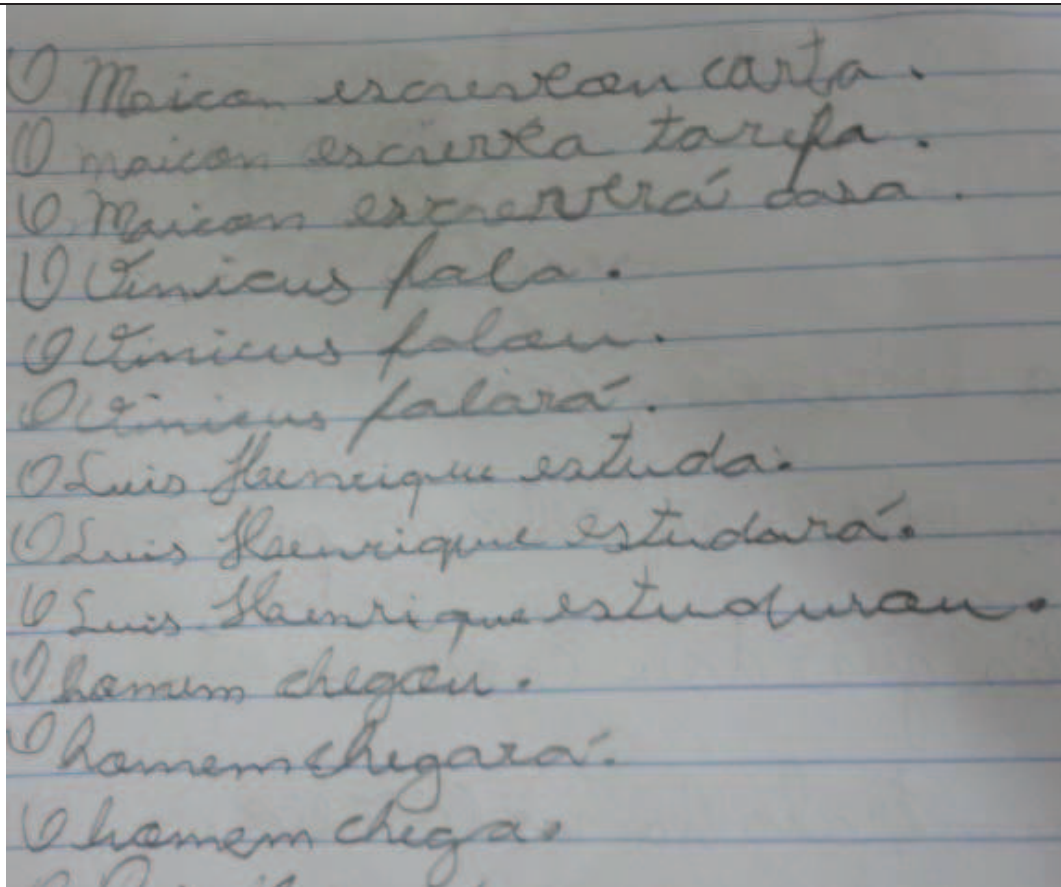 O Maicon escreveou carta.
O maicon escrevea tarefa.
O Maicon escreverá casa.
O Vinicus fala.
O Vinicus falou.
O Vinicus falará.
O Luis Henrique estuda.
O Luis Henrique estudará.
O Luis Henrique estudurou.
O homem chegou.
O homem chegará.
O homem chega.